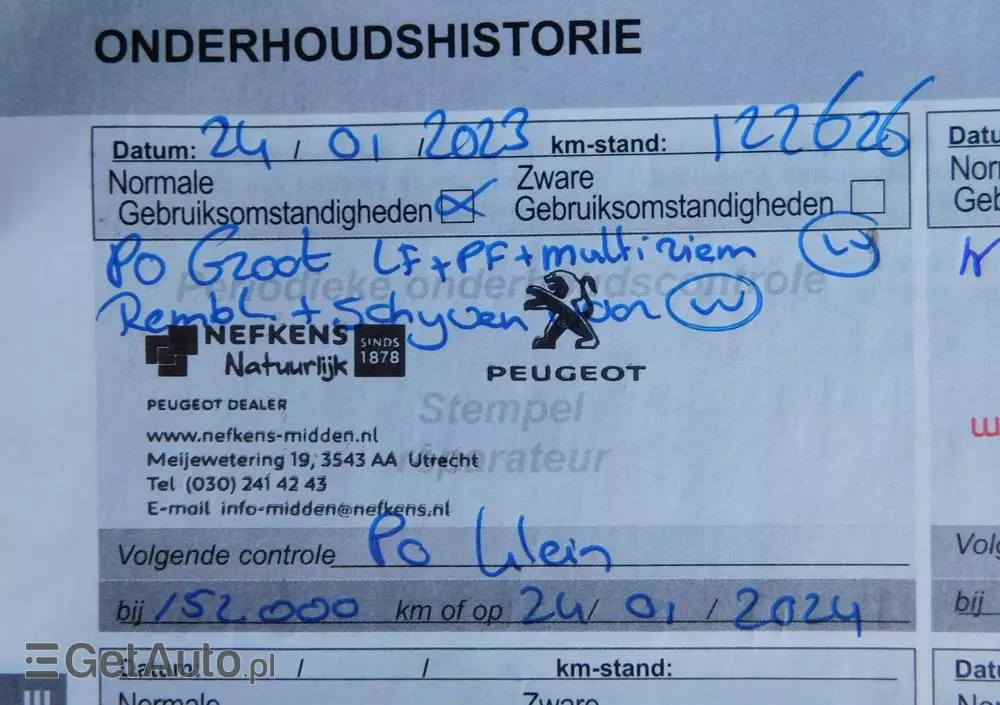 ONDERHOUDSHISTORIE
Datum: 24 / 01 / 2023 km-stand: 122626
Datu
Normale
Gebruiksomstandigheden
Zware
Gebruiksomstandigheden
Nor
Geb
Po Groot LF + PF + multiriem
Periodieke onderhoudscontrole
Rembl + Schyven voor
NEFKENS
Natuurlijk
SINDS
1878
PEUGEOT
PEUGEOT DEALER
Stempel
réparateur
www.nefkens-midden.nl
Meijewetering 19, 3543 AA Utrecht
Tel (030) 241 42 43
E-mail info-midden@nefkens.nl
Volgende controle Po klein
Volg
bij 152.000 km of op 24 / 01 / 2024
bij
GetAuto.pl
Datum: / / km-stand:
Datu
III
Normale
Zware